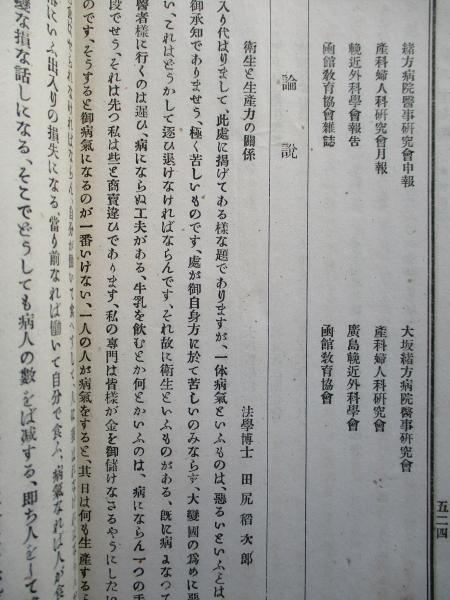 五二四
緒方病院醫事硏究會申報　大坂緒方病院醫事硏究會
產科婦人科硏究會月報　產科婦人科硏究會
輓近外科學會報告　廣島輓近外科學會
函館敎育協會雜誌　函館敎育協會
論說
衛生と生產力の關係
法學博士　田尻稻次郞
入り代はりまして、此處に揭げてある樣な題でありますが、一体病氣といふものは、惡るいといふとは
御承知でありませう、極く苦しいものです、處が御自身方に於て苦しいのみならす、大變國の爲めに惡
い、これはどうかして逐ひ退けなければならんです、それ故に衛生といふものがある、旣に病まなつて
醫者樣に行くのは遲ひ、病にならぬ工夫がある、牛乳を飮むとか何とかいふのは、病にならん一つの手
段でせう、それは先つ私は些と商賣違ひであります、私の專門は皆樣が金を御儲けなさるやうにしたい
のです、そうすると御病氣になるのが一番いけない、一人の人が病氣をすると、其日は何も生產する
にいふ出入りの損失になる、當り前なれば働いて自分で食ふ、病氣なれば人が
な損な話しになる、そこでどうしても病人の數をば減する、卽ち人をして